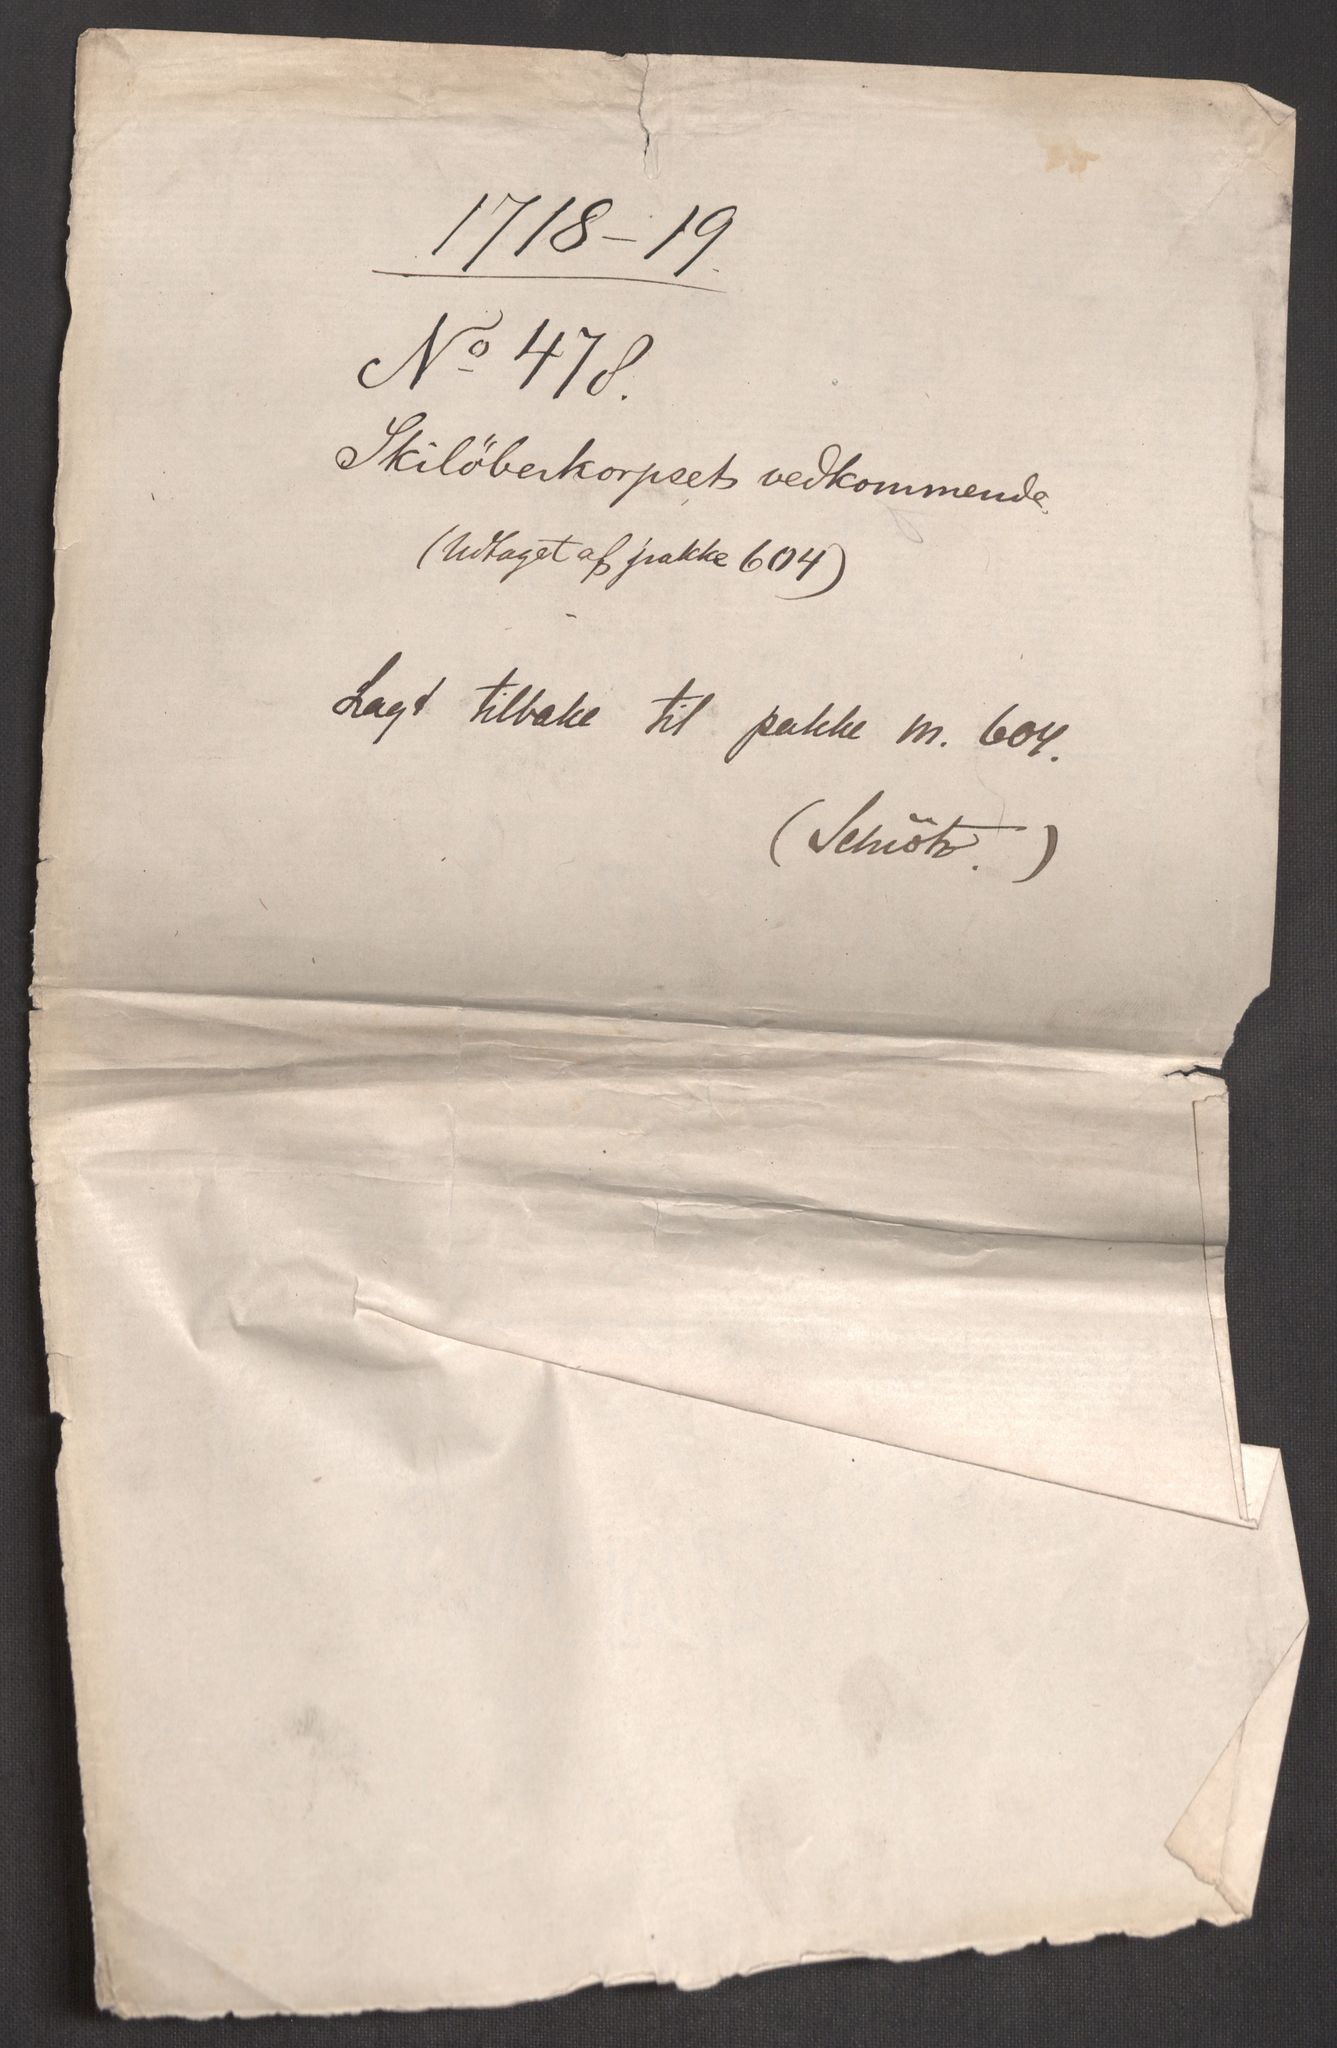 1718-19.
No 478.
Skilöberkorpsets vedkommende.
(Udtaget af pakke 604)
Lagt tilbake til pakke nr. 604.
(Schiötz.)